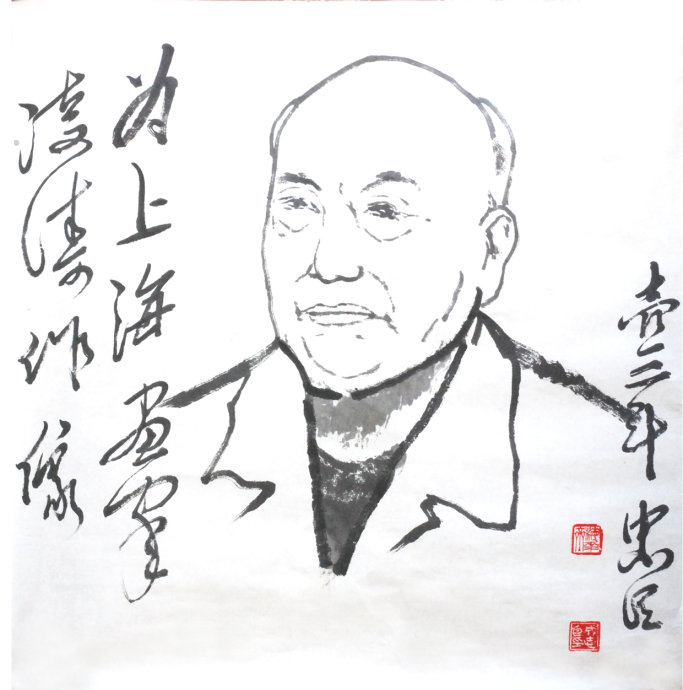 为上海画家
凌涛作像
壹二年 忠